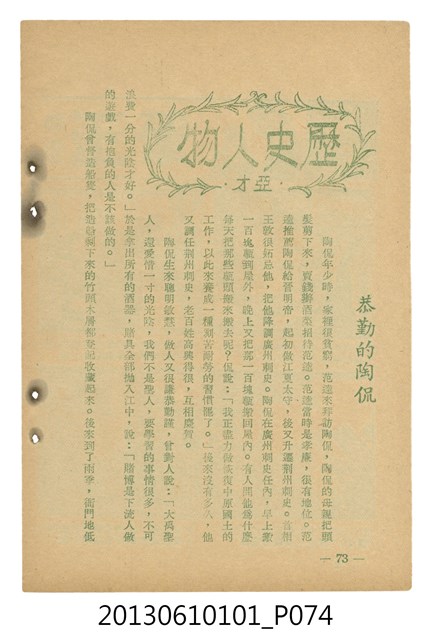 歷史人物
·亞才·
恭勤的陶侃
陶侃年少時,家裡很貧窮,范逵來拜訪陶侃,陶侃的母親把頭
髮剪下來,賣錢辦酒菜相待范逵。范逵當時是孝廉,很有地位。范
逵推薦陶侃給晉明帝,起初做江夏太守,後又升遷荆州刺史。
王敦很妬忌他,把他降調廣州刺史。陶侃在廣州刺史任內,早上搬
一百塊磚到屋外,晚上又把那一百塊磚搬回屋內。有人問他爲什麼
每天把那些磚頭搬來搬去呢?侃說:「我正盡力做恢復中原國土的
工作,以此來養成一種刻苦耐勞的習慣罷了。」後來沒有多久,他
又調任荆州刺史,老百姓高興得很,互相慶賀。
陶侃生來聰明敏慧,做人又很謙恭勤謹,曾對人說:「大禹聖
人,還愛惜一寸的光陰,我們不是聖人,要學習的事情很多,不可
浪費一分的光陰才好。」於是拿出所有的酒器,賭具全部拋入江中,說:「賭博是下流人做
的遊戲,有抱負的人是不該做的。」
陶侃曾督造船隻,把造船剩下來的竹頭木屑都登記收藏起來。後來到了雨雪,衙門地低
— 73 —
20130610101_P074